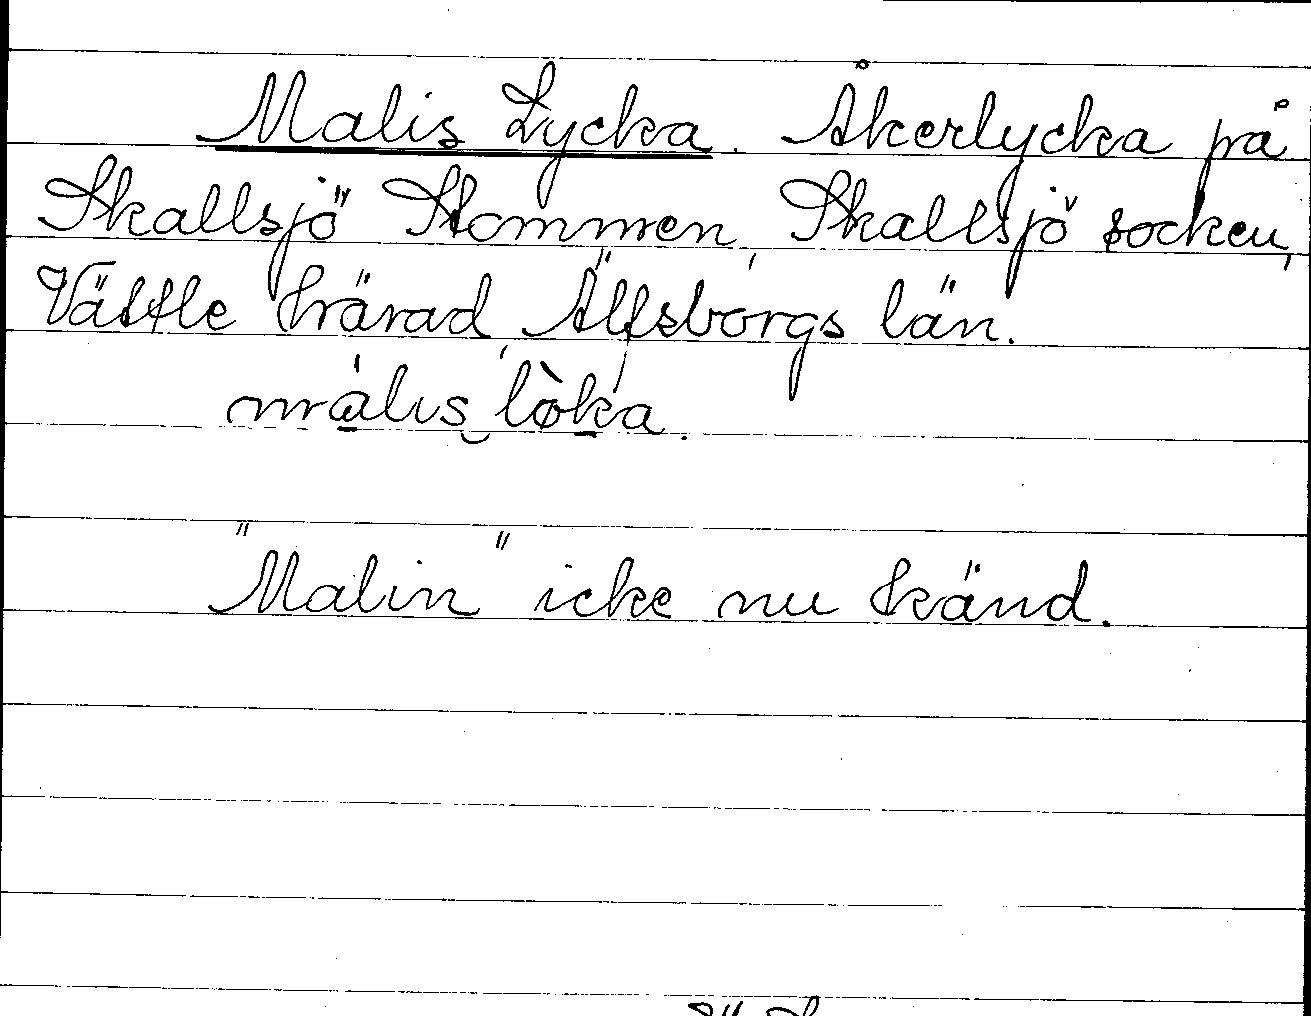 Malis Lycka. Åkerlycka på
Skallsjö Stommen, Skallsjö socken,
Vättle härad, Älfsborgs län.
malis løka.
"Malin" icke nu känd.